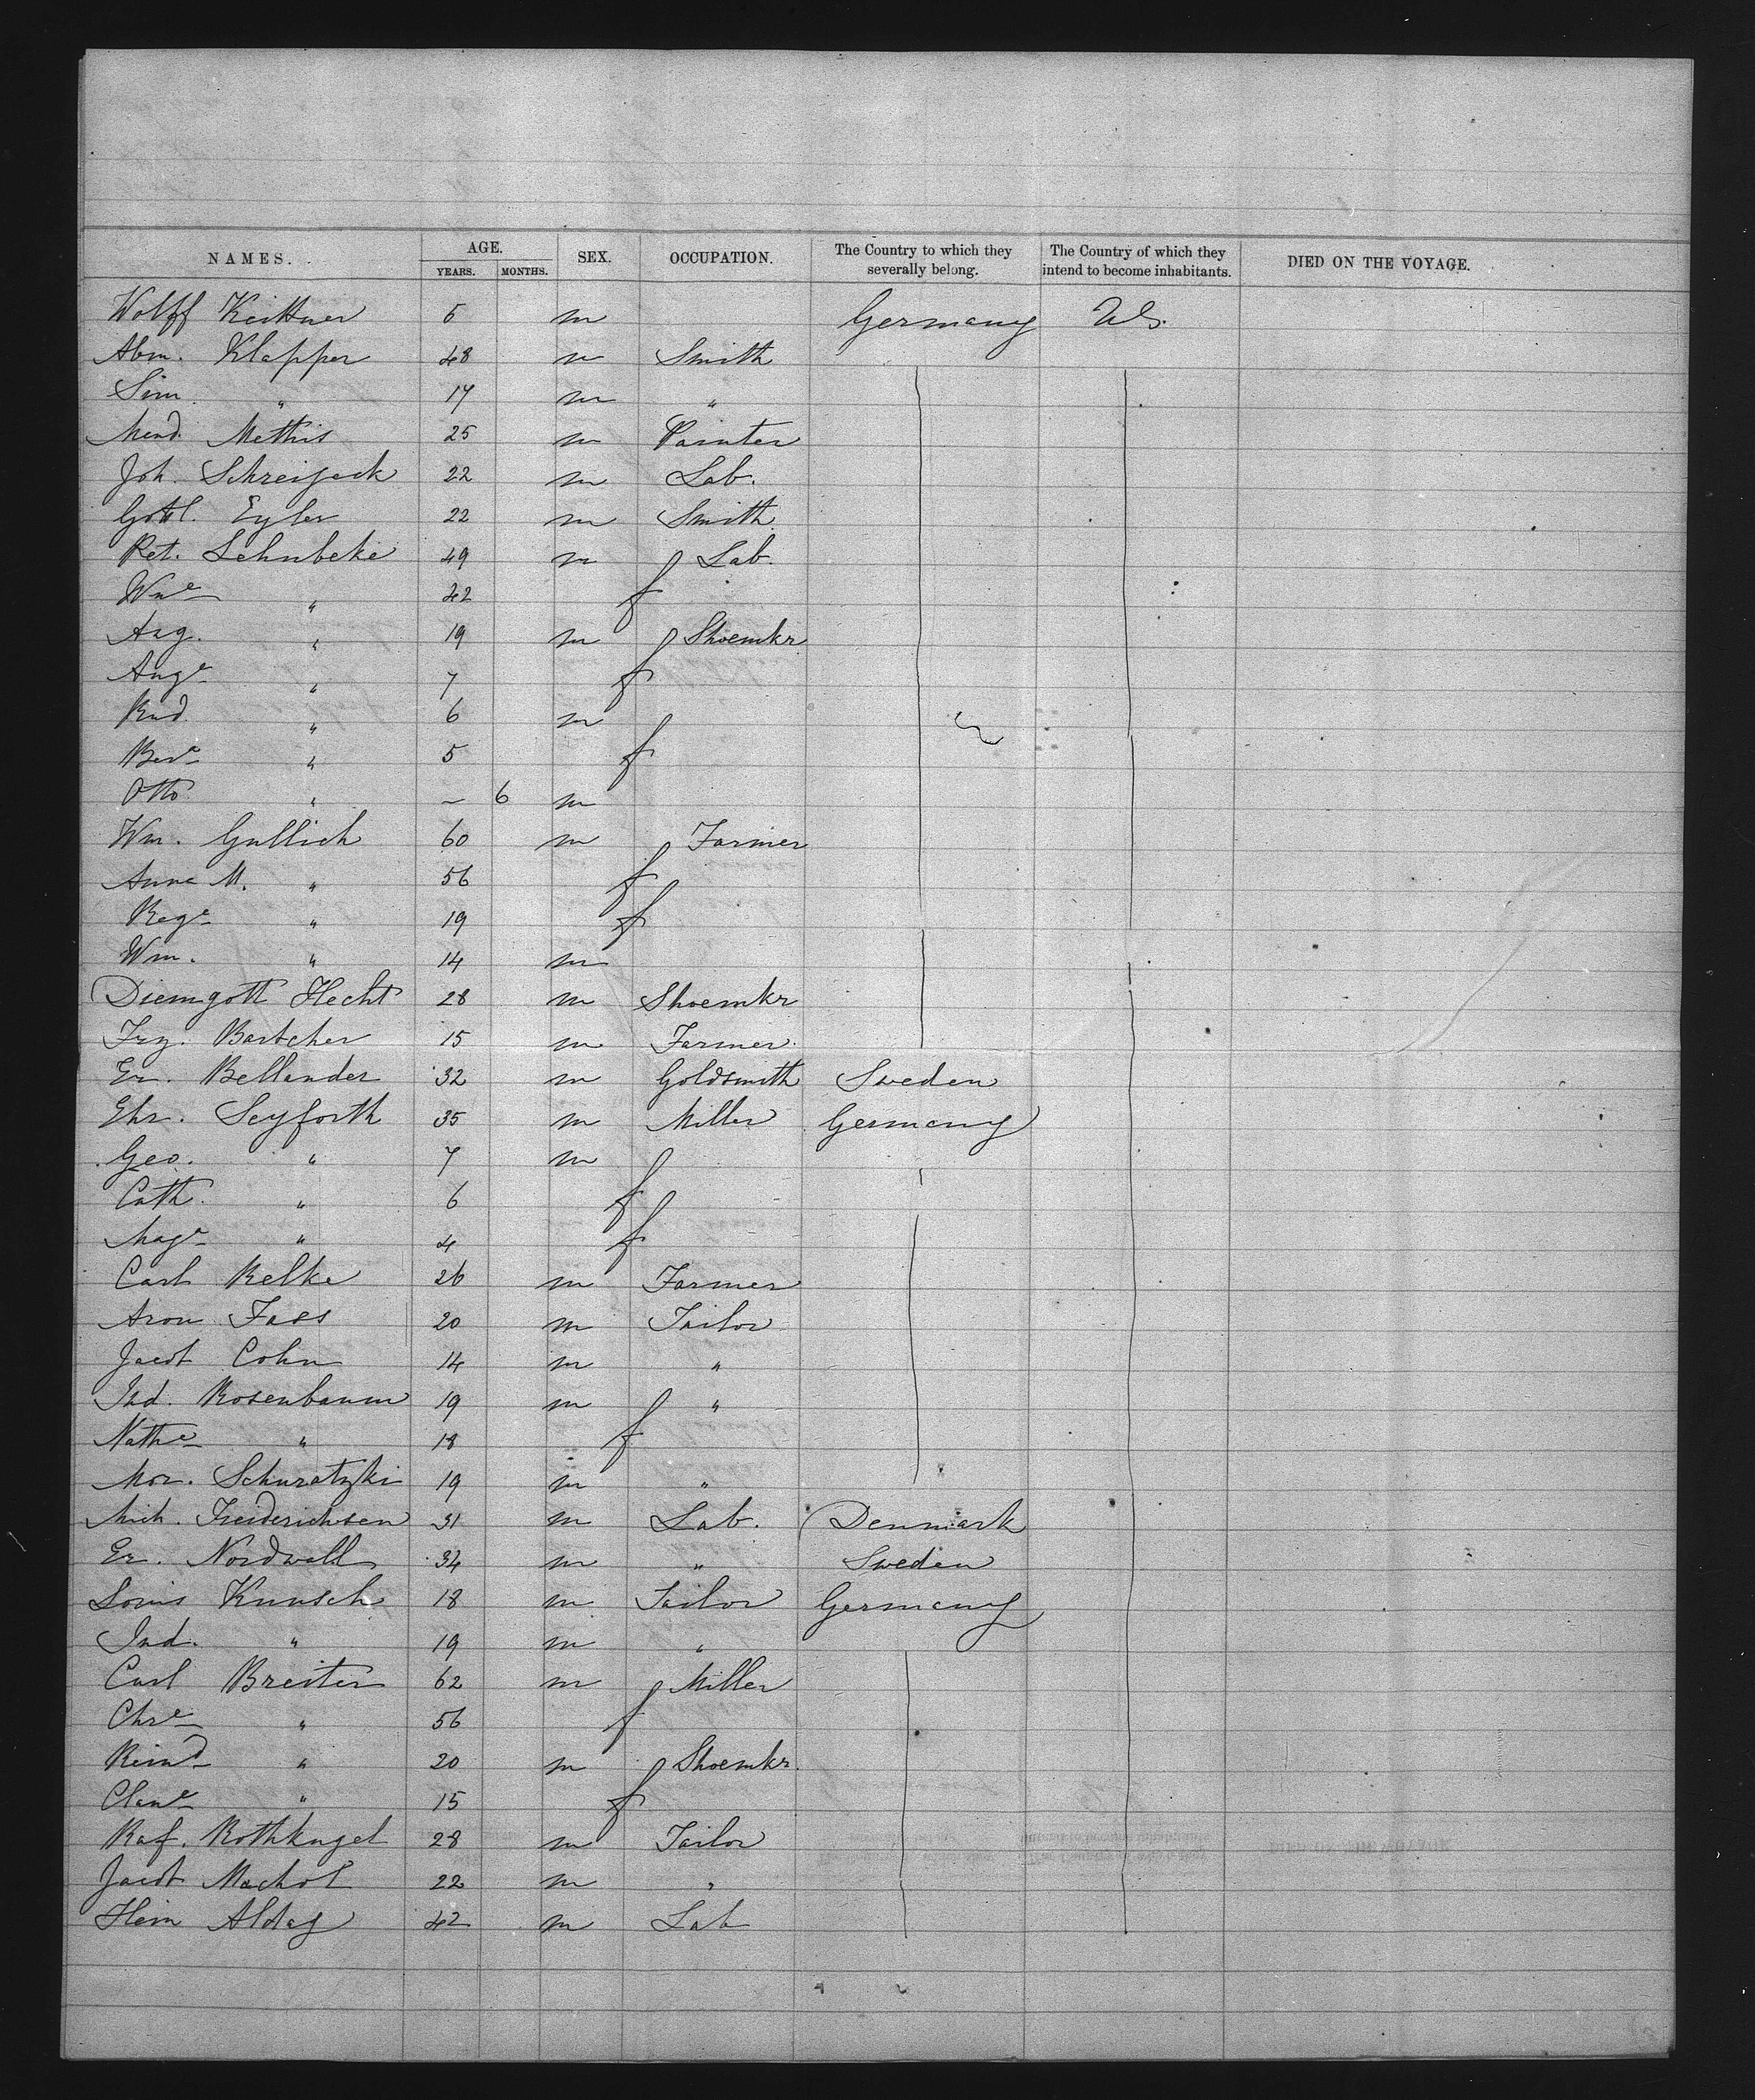 NAMES. AGE. SEX. OCCUPATION. The Country to which they severally belong. The Country of which they intend to become inhabitants. DIED ON THE VOYAGE.
YEARS. MONTHS.
Wolff Keittner 5 m Germany US.
Abm. Klapper 48 m Smith
Sim. " 17 m "
Mend. Methis 25 m Painter
Joh. Schreijack 22 m Lab.
Gottl. Eyler 22 m Smith
Pet. Lehnbeke 49 m Lab.
Wme " 42 f
Aug. " 19 m Shoemkr
Auge " 7 f
Rud. " 6 m
Bere " 5 f
Otto " – 6 m
Wm. Gullich 60 m Farmer
Anna M. " 56 f
Rege " 19 f
Wm. " 14 m
Diemgott Hecht 28 m Shoemkr
Frz. Bartcher 15 m Farmer
Er. Bellander 32 m Goldsmith Sweden
Ehr. Seyforth 35 m Miller Germany
Geo. " 7 m
Cath. " 6 f
Mage " 4 f
Carl Relke 26 m Farmer
Aron Faes 20 m Tailor
Jacob Cohn 14 m "
Isd. Rosenbaum 19 m "
Nathe " 18 f
Mor. Schuratzki 19 m "
Mich. Freiderichsen 31 m Lab. Denmark
Er. Nordwall 34 m " Sweden
Louis Kunsch 18 m Tailor Germany
Ind. " 19 m "
Carl Breiter 62 m Miller
Chre " 56 f
Reind " 20 m Shoemkr.
Clare " 15 f
Raf. Rothkugel 28 m Tailor
Jacob Machol 22 m "
Hein Aldag 42 m Lab